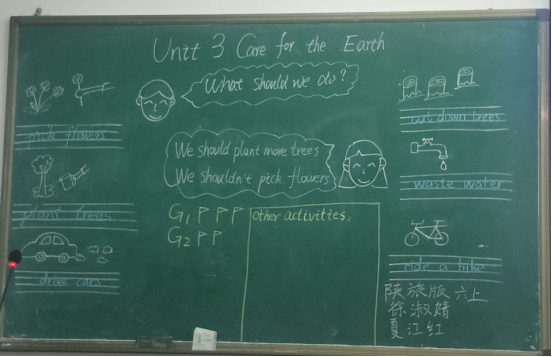 Unit 3 Care for the Earth
What should we do?
pick flowers
cut down trees
We should plant more trees
We shouldn't pick flowers
plant trees
waste water
G1 P P P
other activities.
G2 P P
drive cars
ride a bike
陕旅版 六上
徐淑婧
夏江红